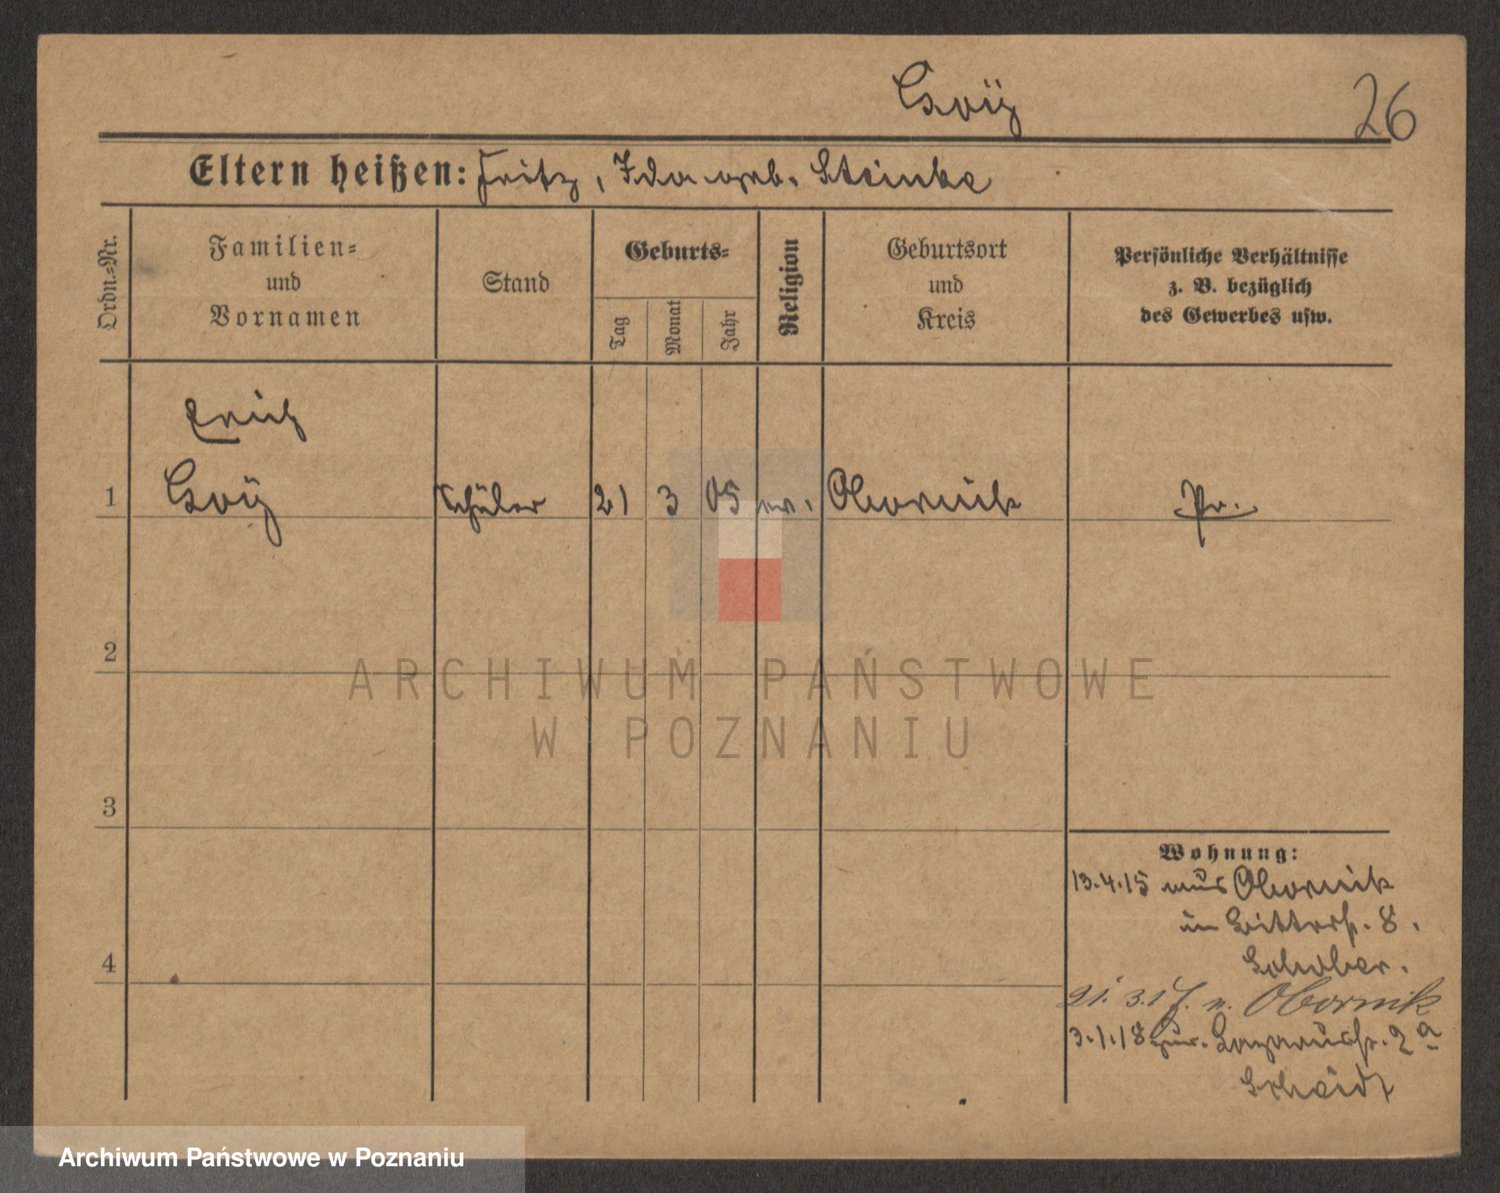 Goÿ 26
Eltern heißen: Fritz, Ida geb. Steinke
Ordn.=Nr.
Familien=
und
Vornamen
Stand
Geburts=
Tag
Monat
Jahr
Religion
Geburtsort
und
Kreis
Persönliche Verhältnisse
z. B. bezüglich
des Gewerbes usw.
Erich
1 Goÿ Schüler 21 3 05 ev. Obornik Pr.
2
3
4
Wohnung:
13.4.15 aus Obornik
in Ritterst. 8.
Schober.
21. 3.17. n. Obornik
3.1.18 zur. Lazarusst. 2a
Scheidt
ARCHIWUM PAŃSTWOWE
W POZNANIU
Archiwum Państwowe w Poznaniu